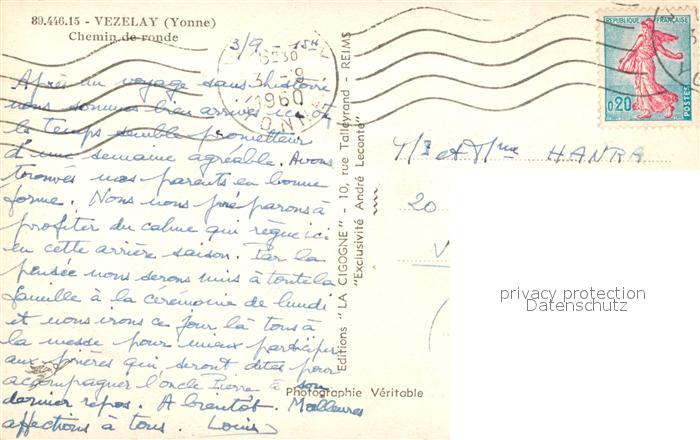 89.446.15 - VEZELAY (Yonne)
Chemin de ronde
3/9 - 15H
15H30
3 - 9
1960
YONNE
REPUBLIQUE FRANÇAISE
0,20
POSTES
Après un voyage sans histoire
nous sommes bien arrivés ici où
le temps semble prometteur
d'une semaine agréable. Avons
trouvés nos parents en bonne
forme. Nous nous préparons à
profiter du calme qui règne ici
en cette arrière saison. Par la
pensée nous serons unis à toute la
famille à la cérémonie de lundi
et nous irons ce jour là tous à
la messe pour mieux participer
aux prières qui seront dites pour
accompagner l'oncle Pierre à son
dernier repos. A bientôt. Meilleures
affections à tous. Louis
Editions "LA CIGOGNE" - 10, rue Talleyrand REIMS
"Exclusivité André Leconte"
Photographie Véritable
HANRA
20
V
privacy protection
Datenschutz